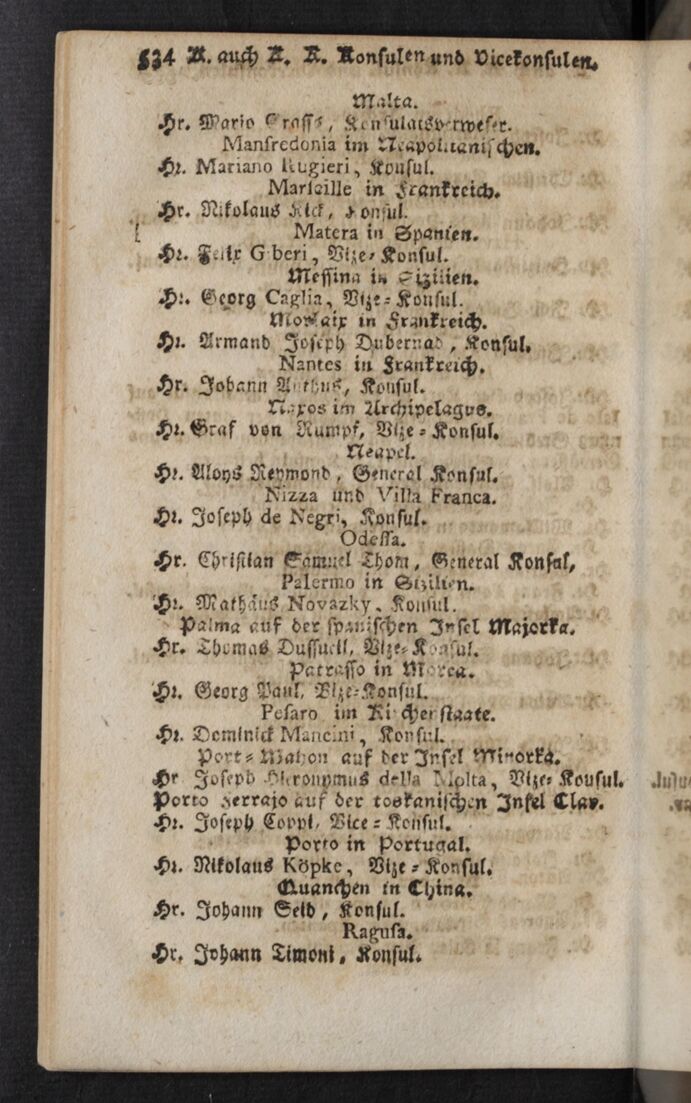 534 K. auch K. K. Konsulen und Vicekonsulen.
Malta.
Hr. Mario Grasse, Konsulatsverweser.
Manfredonia im Neapolitanischen.
Hr. Mariano Rugieri, Konsul.
Marseille in Frankreich.
Hr. Nikolaus Kick, Konsul.
Matera in Spanien.
Hr. Felix Giberi, Vize-Konsul.
Messina in Sizilien.
Hr. Georg Caglia, Vize-Konsul.
Morlaix in Frankreich.
Hr. Armand Joseph Dubernad, Konsul.
Nantes in Frankreich.
Hr. Johann, Konsul.
Naxos im Archipelagus.
Hr. Graf von Rumpf, Vize-Konsul.
Neapel.
Hr. Aloys Reymond, General Konsul.
Nizza und Villa Franca.
Hr. Joseph de Negri, Konsul.
Odessa.
Hr. Christian Samuel Thom, General Konsul,
Palermo in Sizilien.
Hr. Mathäus Novazky, Konsul.
Palma auf der spanischen Insel Majorka.
Hr. Thomas Dussuell, Vize-Konsul.
Patrasso in Morea.
Hr. Georg Paul, Vize-Konsul.
Pesaro im Kirchenstaate.
Hr. Dominick Mancini, Konsul.
Port-Mahon auf der Insel Minorka.
Hr Joseph Hieronymus della Molta, Vize-Konsul.
Porto Ferrajo auf der toskanischen Insel Clav.
Hr. Joseph Coppi, Vice-Konsul.
Porto in Portugal.
Hr. Nikolaus Köpke, Vize-Konsul.
Quanchen in China.
Hr. Johann Seid, Konsul.
Ragusa.
Hr. Johann Timoni, Konsul.